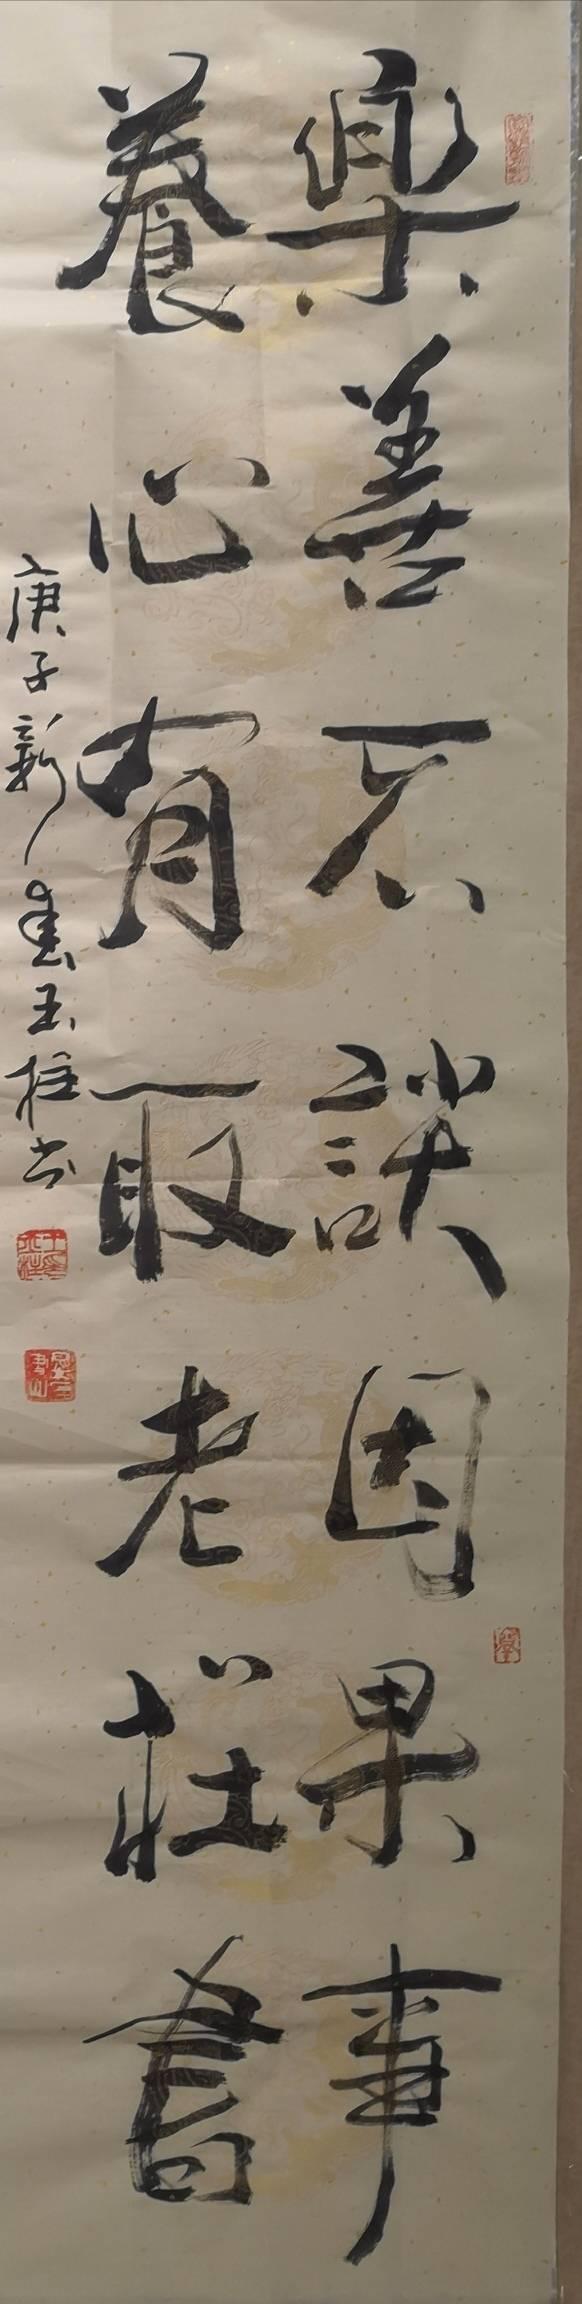 樂善不談因果事
養心有取老莊書
庚子新春玉柱书